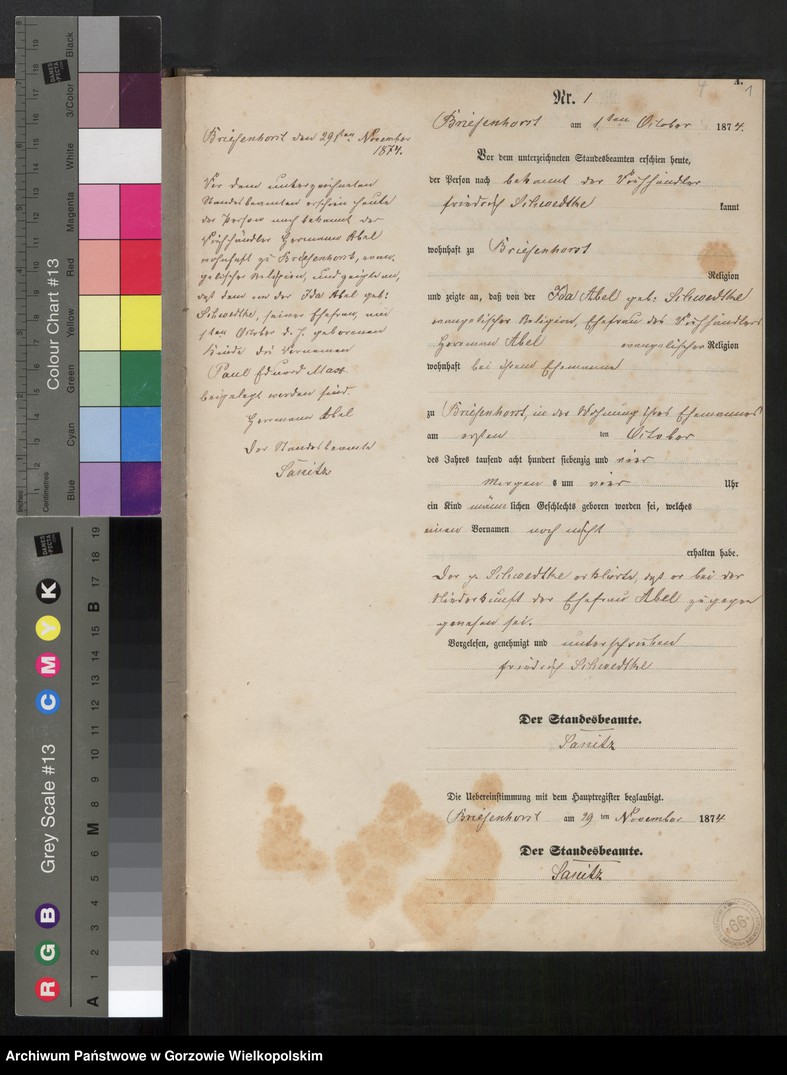 A.
1
Nr. 1
Briesenhorst am 1ten October 1874.
Vor dem unterzeichneten Standesbeamten erschien heute,
der Person nach bekannt der Viehhändler
Friedrich Schwedtke kannt
wohnhaft zu Briesenhorst
Religion
und zeigte an, daß von der Ida Abel geb: Schwedtke
evangelischer Religion, Ehefrau des Viehhändlers
Herrman Abel evangelischer Religion
wohnhaft bei ihrem Ehemanne
zu Briesenhorst, in der Wohnung ihres Ehemannes
am ersten ten October
des Jahres tausend acht hundert siebenzig und vier
Morgens um vier Uhr
ein Kind männlichen Geschlechts geboren worden sei, welches
einen Vornamen noch nicht
erhalten habe.
Der p. Schwedtke erklärte, daß er bei der
Niederkunft der Ehefrau Abel zugegen
gewesen sei.
Vorgelesen, genehmigt und unterschrieben
Friedrich Schwedtke
Der Standesbeamte.
Sanitz
Die Uebereinstimmung mit dem Hauptregister beglaubigt.
Briesenhorst am 29 ten November 1874
Der Standesbeamte.
Sanitz
Briesenhorst den 29sten November
1874.
Vor dem unterzeichneten
Standesbeamten erschien heute
der Person nach bekannt der
Viehhändler Herrmann Abel
wohnhaft zu Briesenhorst, evan-
gelischer Religion, und zeigte an,
daß dem von der Ida Abel geb:
Schwedtke, seiner Ehefrau, am
1ten October d. J. geborenen
Kinde die Vornamen
Paul Eduard Max
beigelegt worden sind.
Herrmann Abel
Der Standesbeamte
Sanitz
66
Colour Chart #13
Black
3/Color
White
Magenta
Red
Yellow
Green
Cyan
Blue
Inches
Centimetres
DANES
PICTA
Grey Scale #13
R G B C M Y K
A M B
Archiwum Państwowe w Gorzowie Wielkopolskim